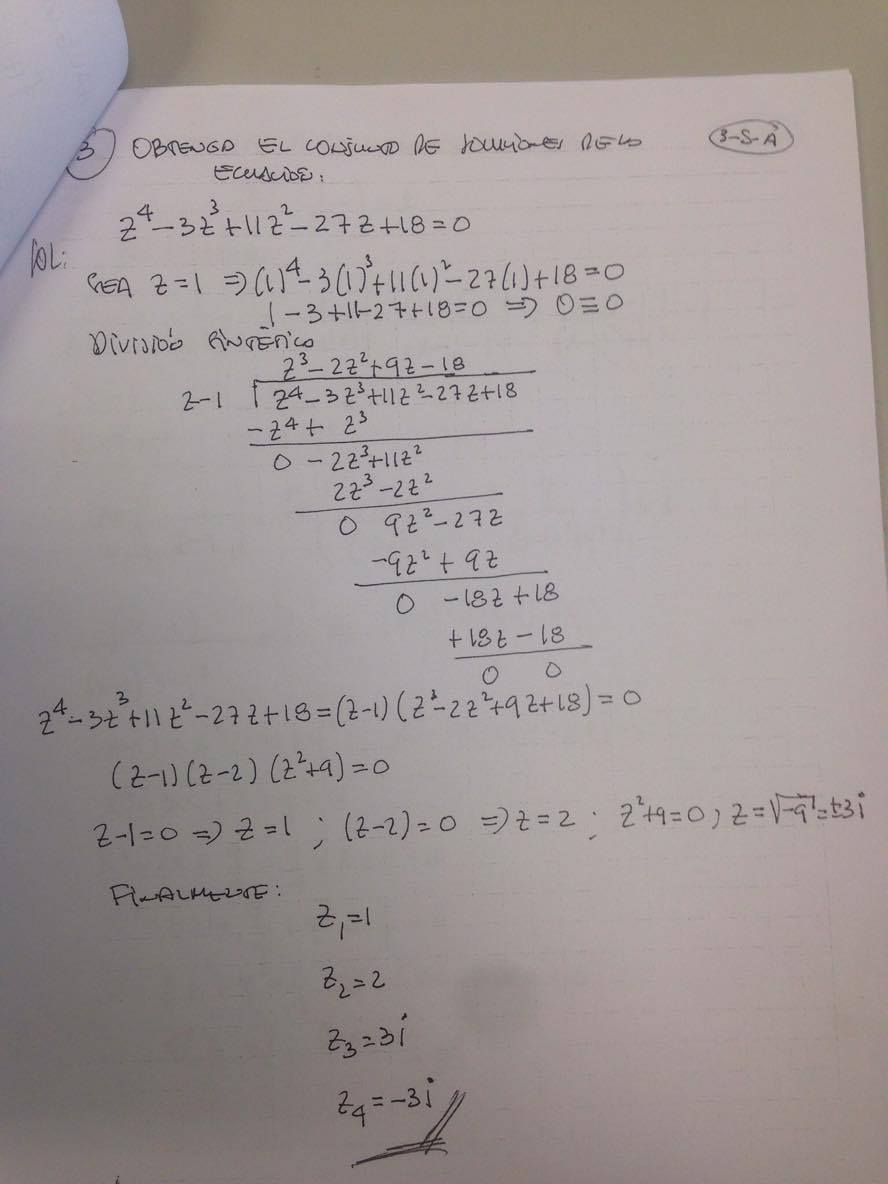 3 OBTENGA EL CONJUNTO DE SOLUCIONES DE LA
3-S-A
ECUACIÓN:
z⁴-3z³+11z²-27z+18=0
SOL:
SEA z=1 ⇒ (1)⁴-3(1)³+11(1)²-27(1)+18=0
1-3+11-27+18=0 ⇒ 0≡0
DIVISIÓN SINTÉTICA
z³-2z²+9z-18
z-1 z⁴-3z³+11z²-27z+18
-z⁴+ z³
0 -2z³+11z²
2z³-2z²
0 9z²-27z
-9z²+9z
0 -18z+18
+18z-18
0 0
z⁴-3z³+11z²-27z+18=(z-1)(z³-2z²+9z+18)=0
(z-1)(z-2)(z²+9)=0
z-1=0 ⇒ z=1 ; (z-2)=0 ⇒ z=2 ; z²+9=0, z=√-9=±3i
FINALMENTE:
z₁=1
z₂=2
z₃=3i
z₄=-3i